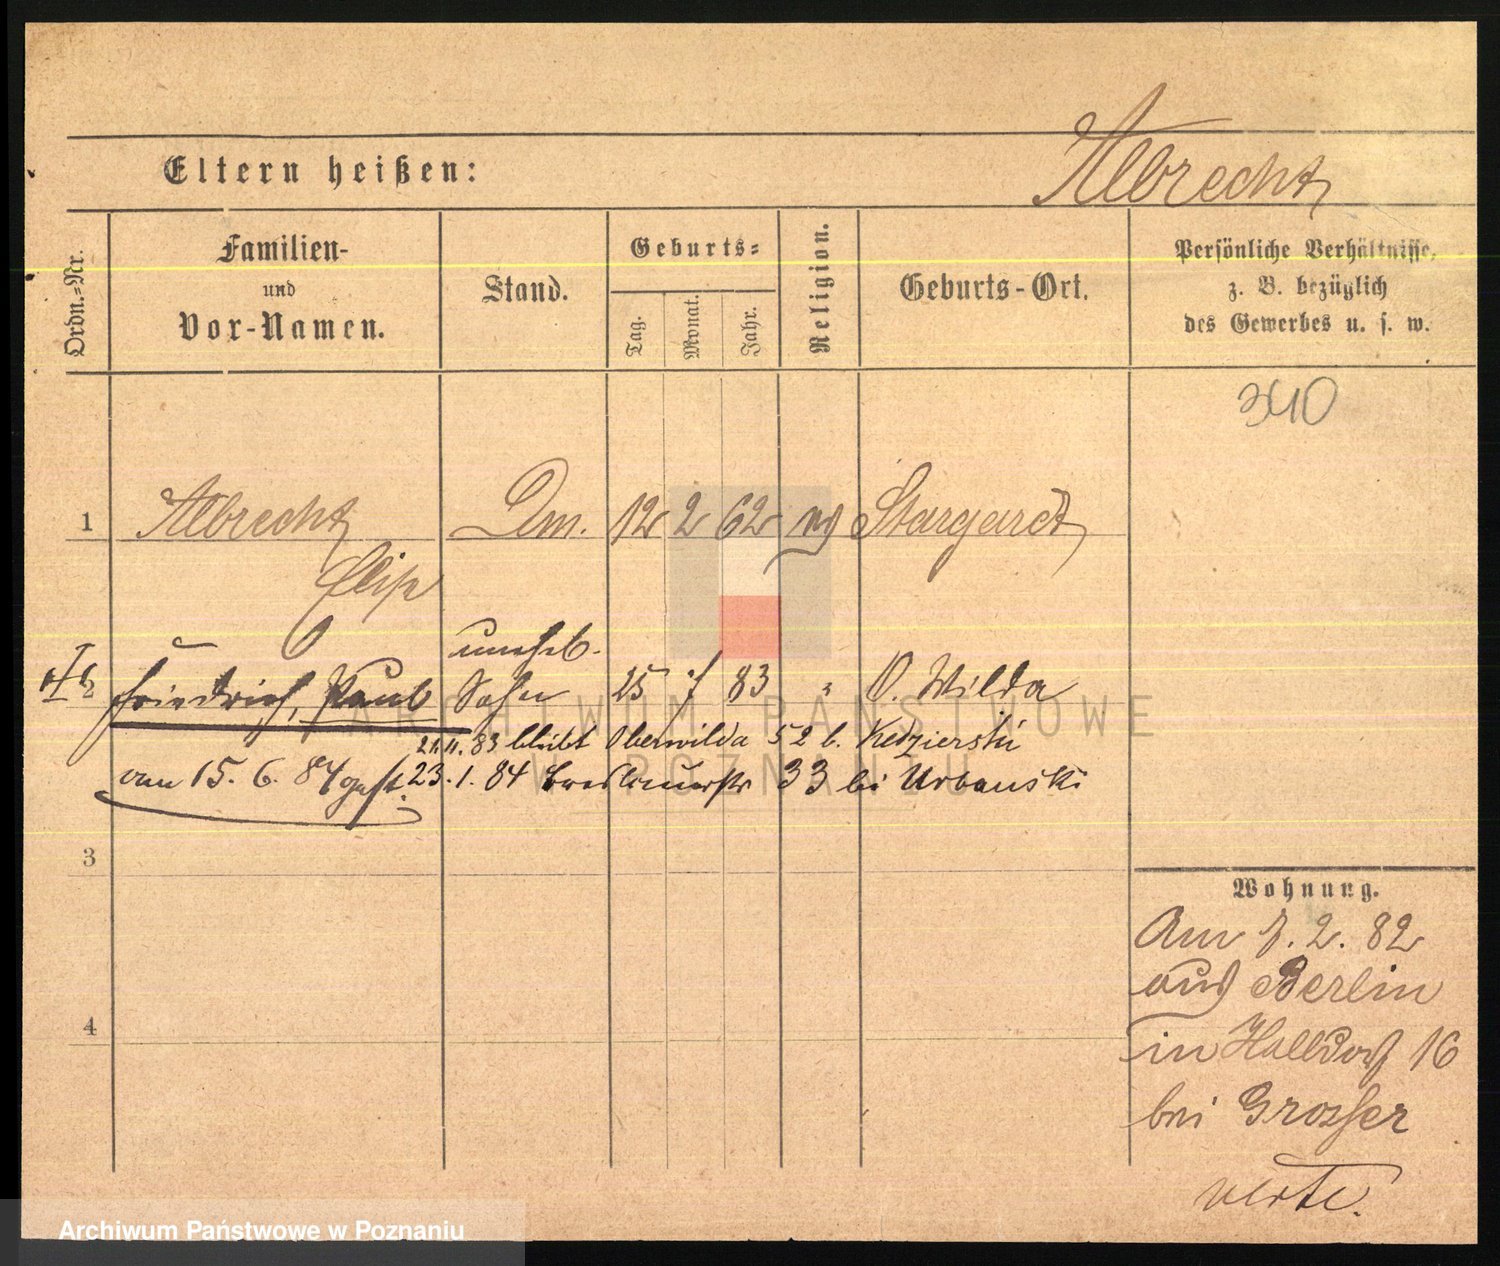 Albrecht
Eltern heißen:
Ordn.=Nr.
Familien-
und
Vor-Namen.
Stand.
Geburts=
Tag.
Monat.
Jahr.
Religion.
Geburts-Ort.
Persönliche Verhältnisse,
z. B. bezüglich
des Gewerbes u. s. w.
340
1 Albrecht Dm. 12 2 62 ev Stargardt
Elise
unehel.
Friedrich, Paul Sohn 25 7 83 " O. Wilda
21.11.83 bleibt Oberwilda 52 b. Kedzierski
am 15. 6. 84 gest. 23.1.84 Breslauerstr 33 bei Urbanski
3
4
Wohnung.
Am 7. 2. 82
aus Berlin
in Halldorf 16
bei Grosser
verte.
ARCHIWUM PAŃSTWOWE
W POZNANIU
Archiwum Państwowe w Poznaniu